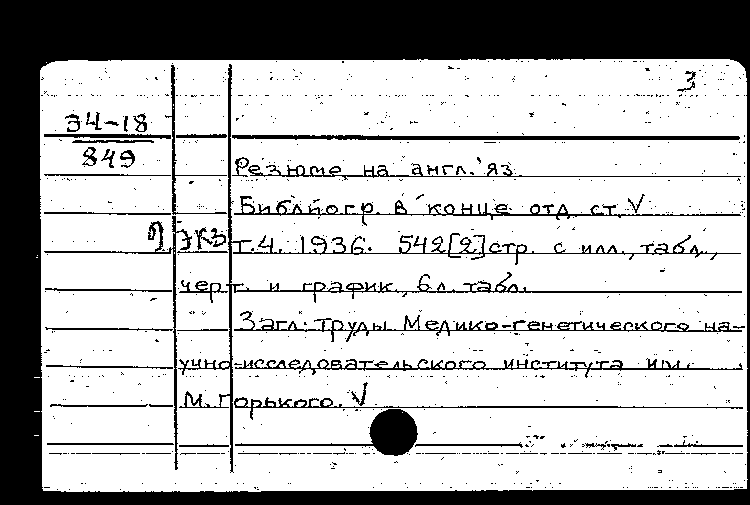 3
34-18
849
Резюме на англ. яз.
Библиогр. в конце отд. ст. V
2 экз т.4. 1936. 542[2]стр. с илл., табл.,
черт. и график., 6 л. табл.
Загл: Труды Медико-генетического на-
учно-исследовательского института им.
М. Горького. V